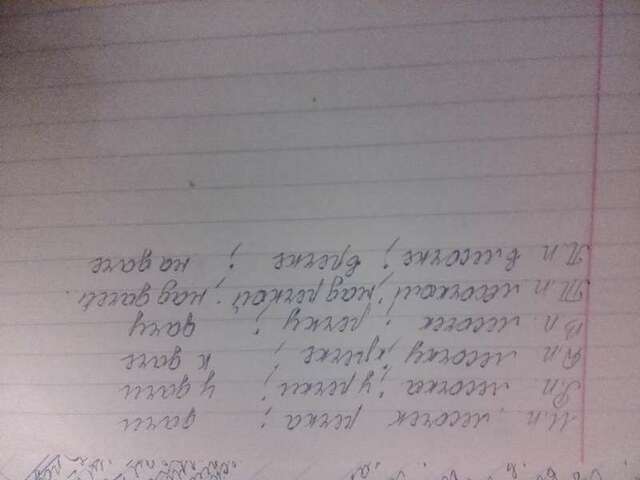 И.п. лесочек речка; дачи
Р.п. лесочка; у речки; у дачи
Д.п. лесочку; к речке; к даче
В.п. лесочек; речку; дачу
Т.п. лесочком; над речкой; над дачей.
П.п. в лесочке; в речке; на даче